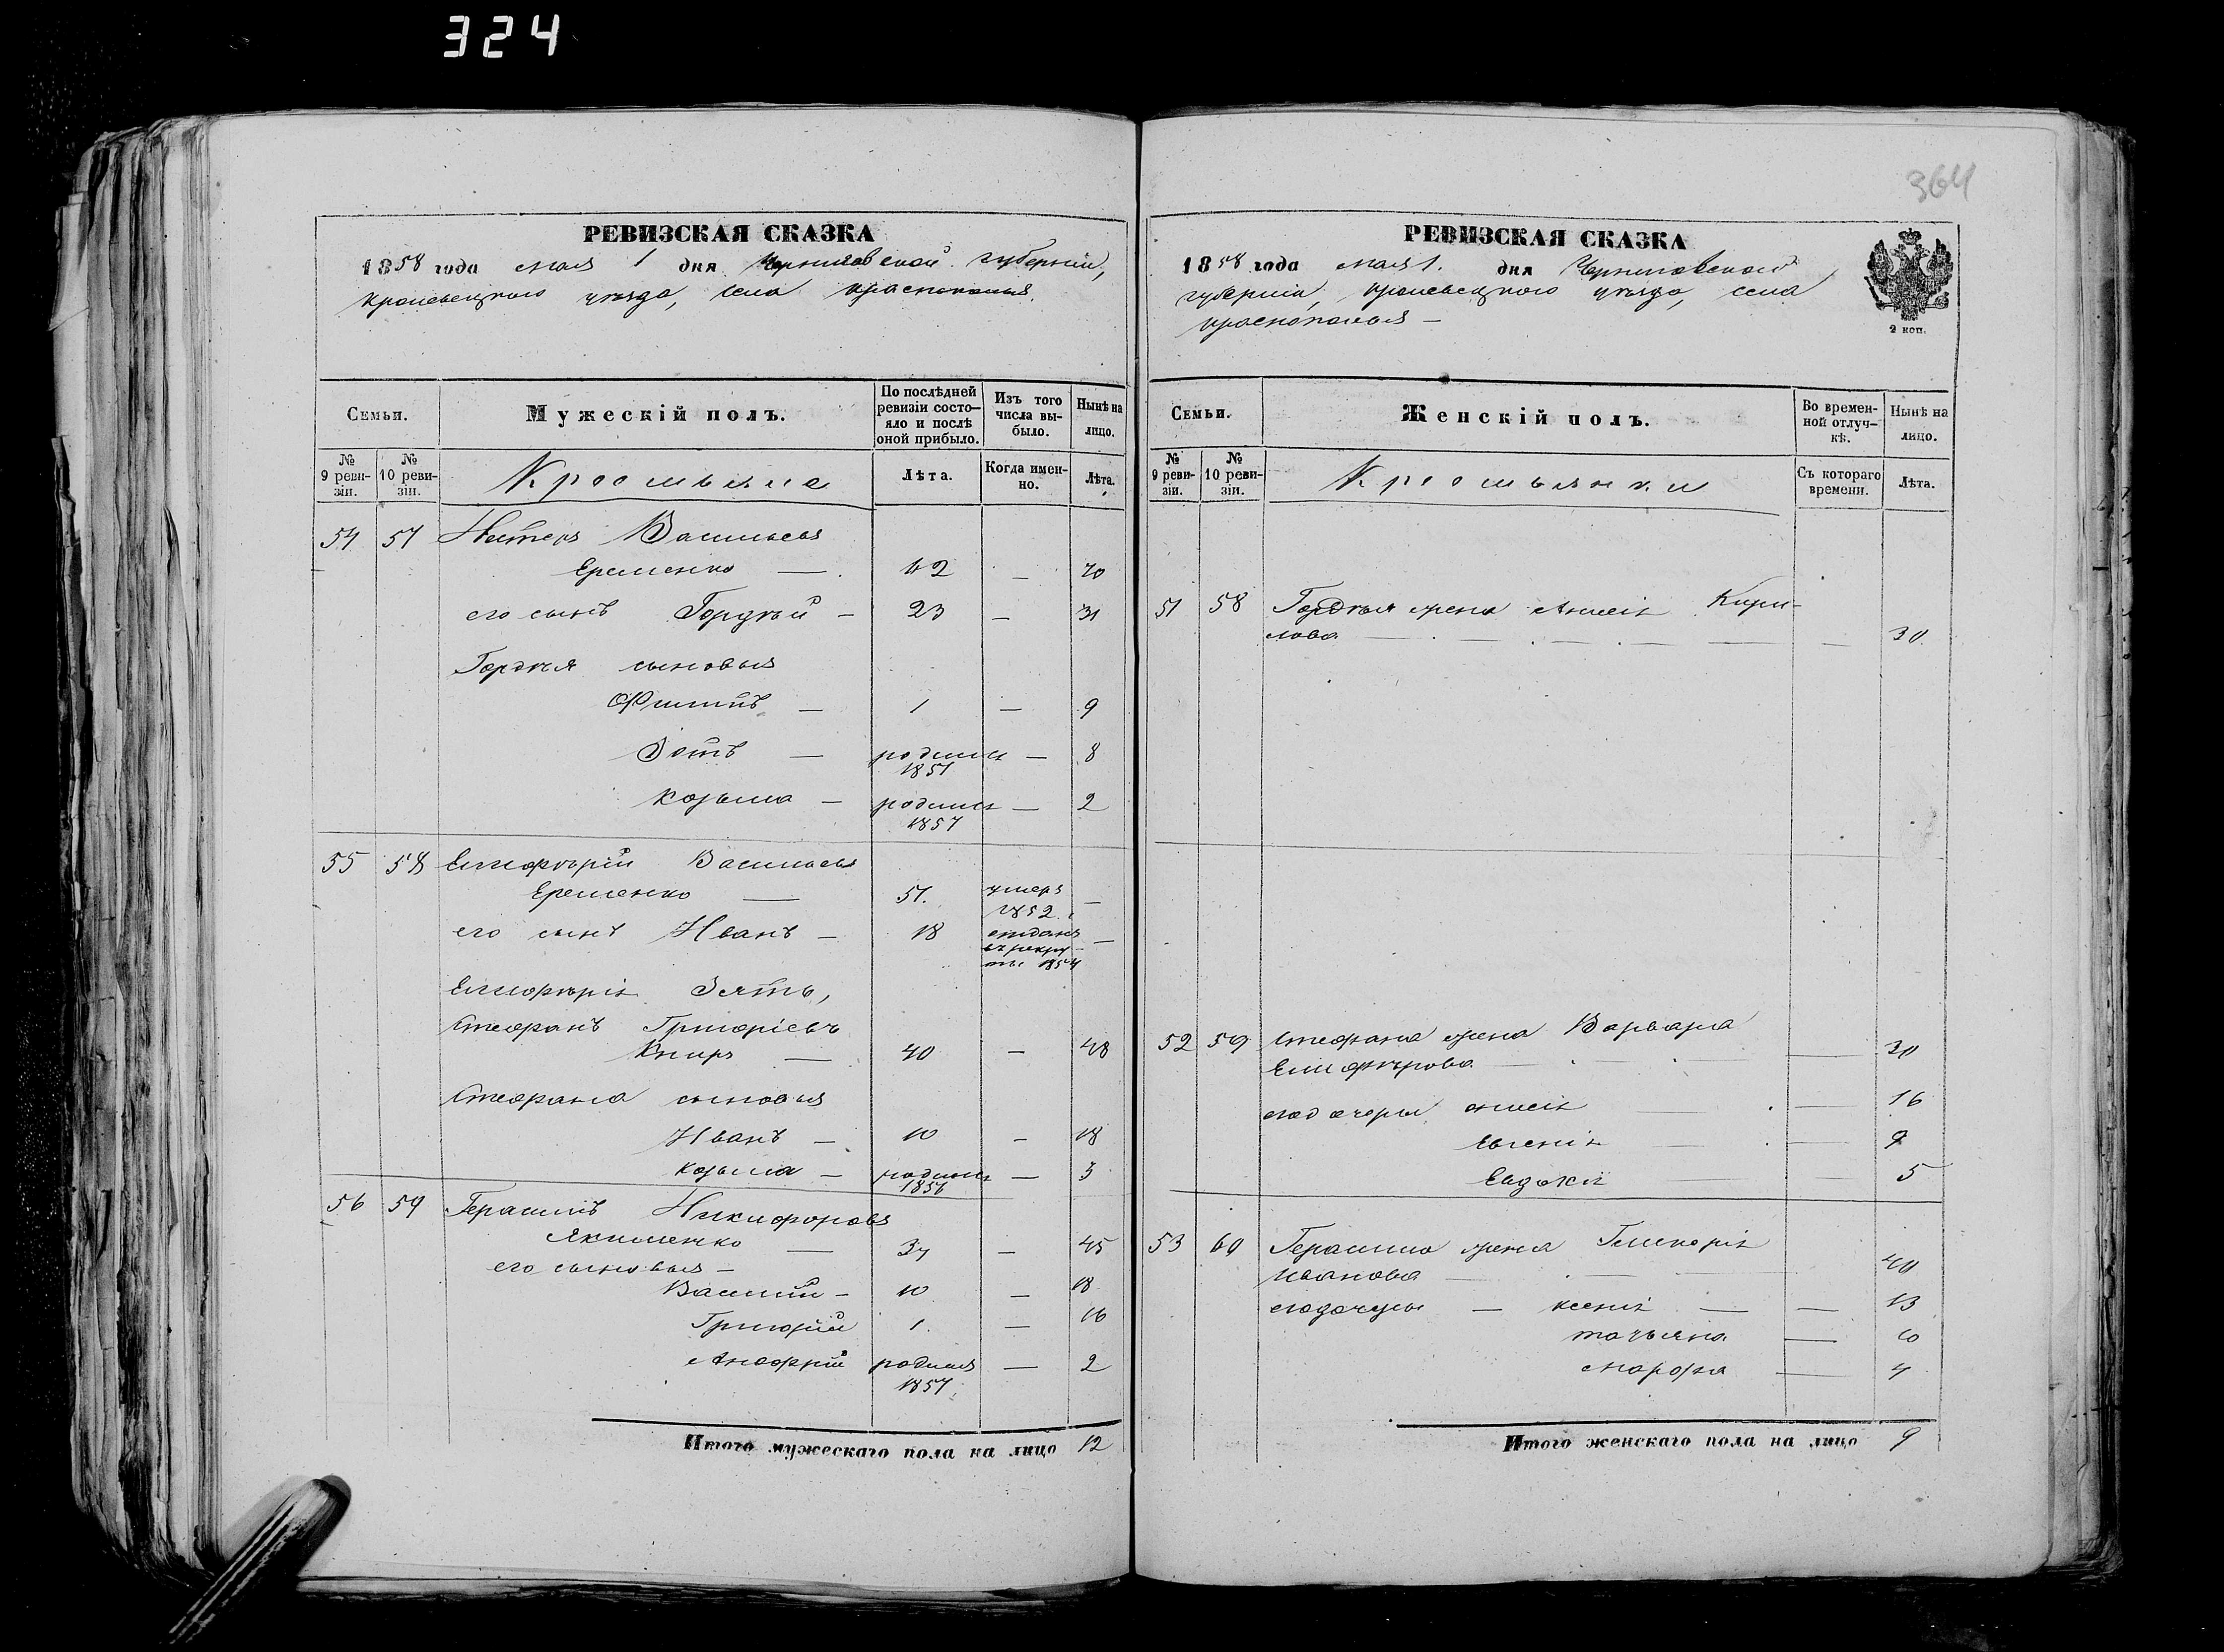 324
364
РЕВИЗСКАЯ СКАЗКА
1858 года мая 1 дня Черниговской губерніи,
Кролевецкаго уѣзда, села Краснополья.
Семьи.
Мужескій полъ.
По послѣдней ревизіи состо-яло и послѣ оной прибыло.
Изъ того числа вы-было.
Нынѣ на лицо.
№ 9 реви-зіи.
№ 10 реви-зіи.
Крестьяне
Лѣта.
Когда имен-но.
Лѣта.
54 57 Нестеръ Васильевъ
Еременко — 42 — 50
его сынъ Гордѣй — 23 — 31
Гордѣя сыновья
Филиппъ — 1 — 9
Зотъ — родился 1851 — 8
Козьма — родился 1857 — 2
55 58 Елиферій Васильевъ
Еременко — 51. умеръ 1852. —
его сынъ Иванъ — 18 отданъ въ рекру-ты 1854 —
Елиферія Зять,
Стефанъ Григорьевъ
Книръ — 40 — 48
Стефана сыновья
Иванъ — 10 — 18
Козьма — родился 1856 — 3
56 59 Герасимъ Никифоровъ
Якименко — 37 — 45
его сыновья —
Василій — 10 — 18
Григорій 1. — 16
родился 1857. — 2
Итого мужескаго пола на лицо 12
РЕВИЗСКАЯ СКАЗКА
1858 года мая 1. дня Черниговской
губерніи, Кролевецкаго уѣзда, села
Краснополья —
2 коп.
Семьи.
Женскій полъ.
Во времен-ной отлуч-кѣ.
Нынѣ на лицо.
№ 9 реви-зіи.
№ 10 реви-зіи.
Крестьянки
Съ котораго времени.
Лѣта.
51 58 Гордѣя жена Анисія Кири-
лова — — 30
52 59 Стефана жена Варвара
Елиферова — — 30
его дочери Анисія — 16
Евгенія — 9
Евдокія 5
53 60 Герасима жена Гликерія
Иванова — 40
его дочери — Ксенія — — 13
Татьяна — 10
Марфа — 4
Итого женскаго пола на лицо 9